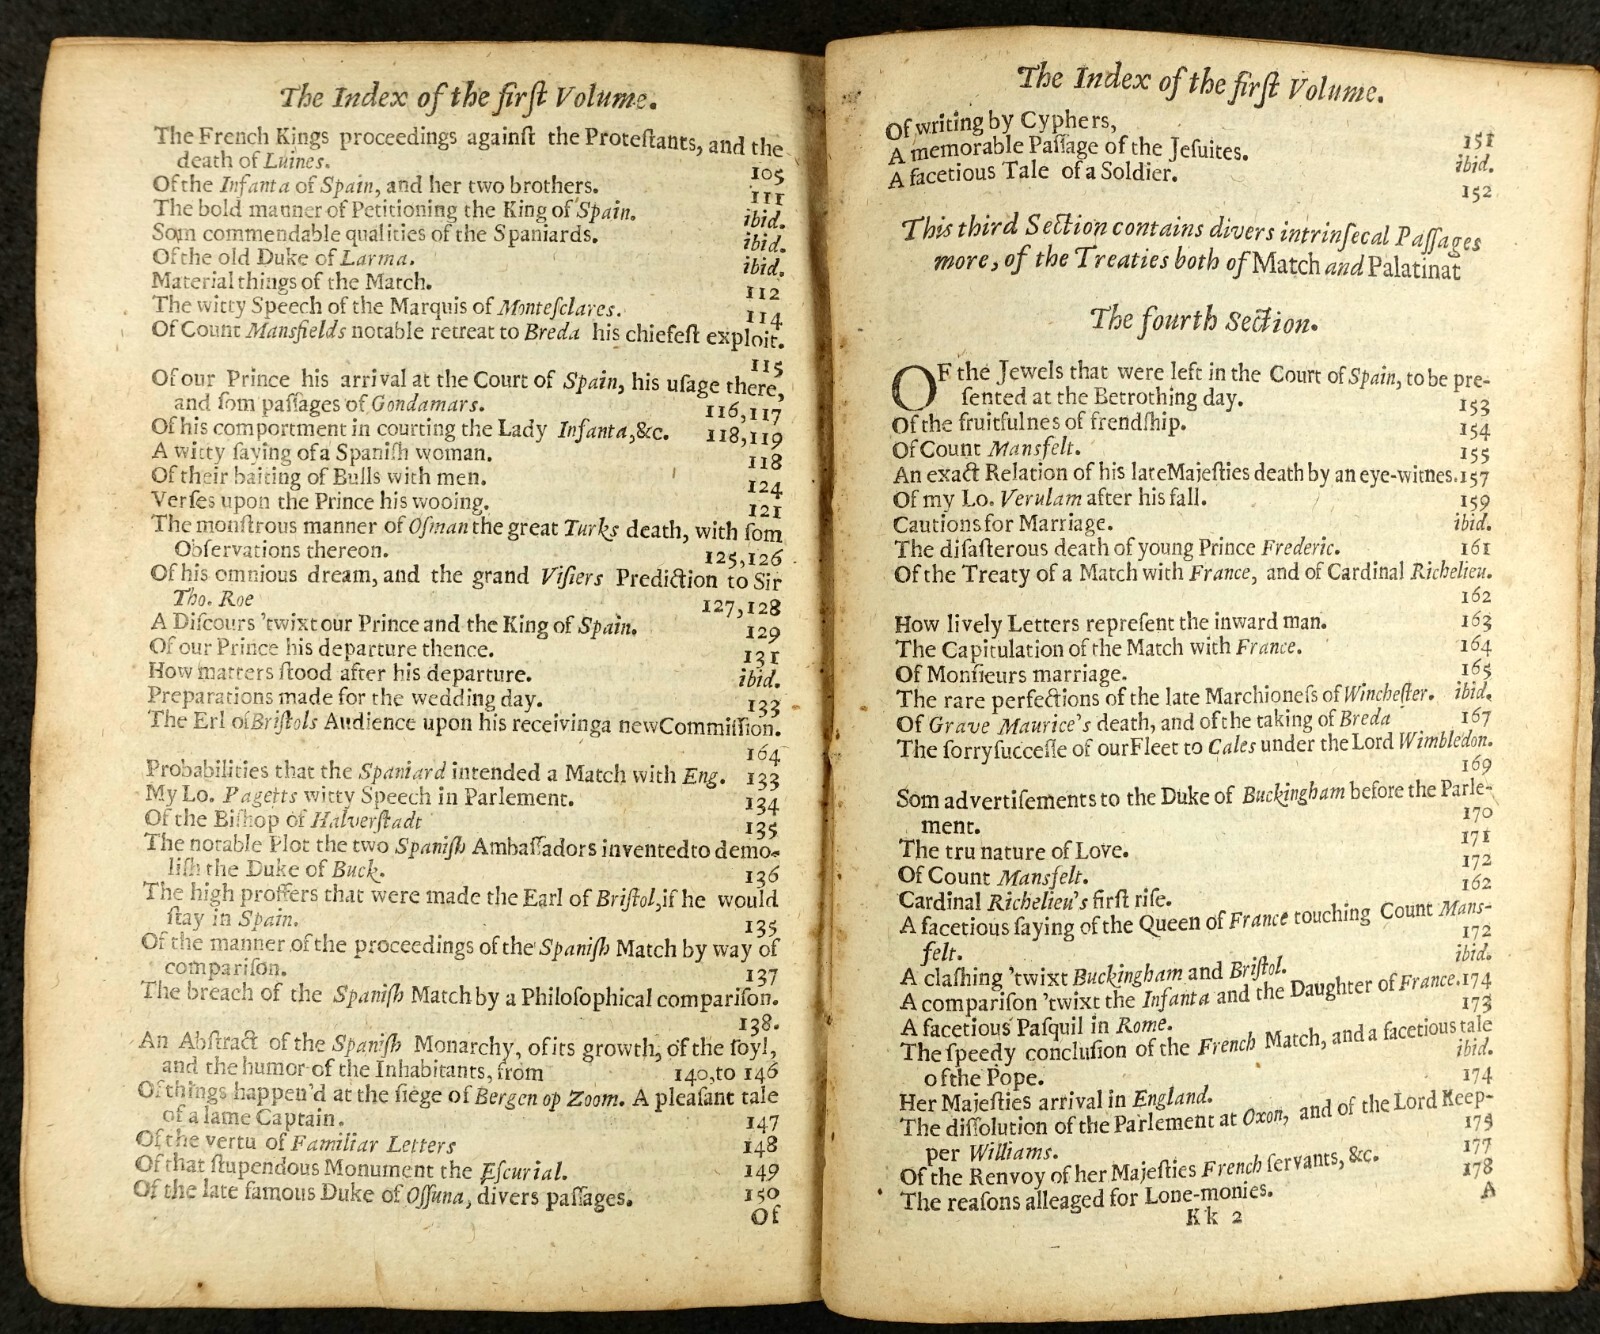 The Index of the firſt Volume.
The French Kings proceedings againſt the Proteſtants, and the
death of Luines. 105
Of the Infanta of Spain, and her two brothers. 111
The bold manner of Petitioning the King of Spain. ibid.
Som commendable qualities of the Spaniards. ibid.
Of the old Duke of Larma. ibid.
Material things of the Match. 112
The witty Speech of the Marquis of Monteſclares. 114
Of Count Mansfields notable retreat to Breda his chiefeſt exploit.
115
Of our Prince his arrival at the Court of Spain, his uſage there,
and ſom paſſages of Gondamars. 116,117
Of his comportment in courting the Lady Infanta,&c. 118,119
A witty ſaying of a Spaniſh woman. 118
Of their baiting of Bulls with men. 124
Verſes upon the Prince his wooing. 121
The monſtrous manner of Oſman the great Turks death, with ſom
Obſervations thereon. 125,126
Of his omnious dream, and the grand Viſiers Prediction to Sir
Tho. Roe 127,128
A Diſcours 'twixt our Prince and the King of Spain. 129
Of our Prince his departure thence. 131
How matters ſtood after his departure. ibid.
Preparations made for the wedding day. 133
The Erl of Briſtols Audience upon his receiving a new Commiſſion.
164
Probabilities that the Spaniard intended a Match with Eng. 133
My Lo. Pagetts witty Speech in Parlement. 134
Of the Biſhop of Halverſtadt 135
The notable Plot the two Spaniſh Ambaſſadors invented to demo-
liſh the Duke of Buck. 136
The high proffers that were made the Earl of Briſtol,if he would
ſtay in Spain. 135
Of the manner of the proceedings of the Spaniſh Match by way of
compariſon. 137
The breach of the Spaniſh Match by a Philoſophical compariſon.
138.
An Abſtract of the Spaniſh Monarchy, of its growth, of the ſoyl,
and the humor of the Inhabitants, from 140,to 146
Of things happen'd at the ſiege of Bergen op Zoom. A pleaſant tale
of a lame Captain. 147
Of the vertu of Familiar Letters 148
Of that ſtupendous Monument the Eſcurial. 149
Of the late famous Duke of Oſſuna, divers paſſages. 150
Of
The Index of the firſt Volume.
Of writing by Cyphers, 151
A memorable Paſſage of the Jeſuites. ibid.
A facetious Tale of a Soldier. 152
This third Section contains divers intrinſecal Paſſages
more, of the Treaties both of Match and Palatinat
The fourth Section.
OF the Jewels that were left in the Court of Spain, to be pre-
ſented at the Betrothing day. 153
Of the fruitfulnes of frendſhip. 154
Of Count Mansfelt. 155
An exact Relation of his late Majeſties death by an eye-witnes. 157
Of my Lo. Verulam after his fall. 159
Cautions for Marriage. ibid.
The diſaſterous death of young Prince Frederic. 161
Of the Treaty of a Match with France, and of Cardinal Richelieu.
162
How lively Letters repreſent the inward man. 163
The Capitulation of the Match with France. 164
Of Monſieurs marriage. 165
The rare perfections of the late Marchioneſs of Wincheſter. ibid.
Of Grave Maurice's death, and of the taking of Breda 167
The ſorry ſucceſſe of our Fleet to Cales under the Lord Wimbledon.
169
Som advertiſements to the Duke of Buckingham before the Parle-
ment. 170
The tru nature of Love. 171
Of Count Mansfelt. 172
Cardinal Richelieu's firſt riſe. 162
A facetious ſaying of the Queen of France touching Count Mans-
felt. 172
A claſhing 'twixt Buckingham and Briſtol. ibid.
A compariſon 'twixt the Infanta and the Daughter of France. 174
A facetious Paſquil in Rome. 173
The ſpeedy concluſion of the French Match, and a facetious tale
of the Pope. ibid.
Her Majeſties arrival in England. 174
The diſſolution of the Parlement at Oxon, and of the Lord Keep-
per Williams. 175
Of the Renvoy of her Majeſties French ſervants, &c. 177
The reaſons alleaged for Lone-monies. 178
Kk 2 A